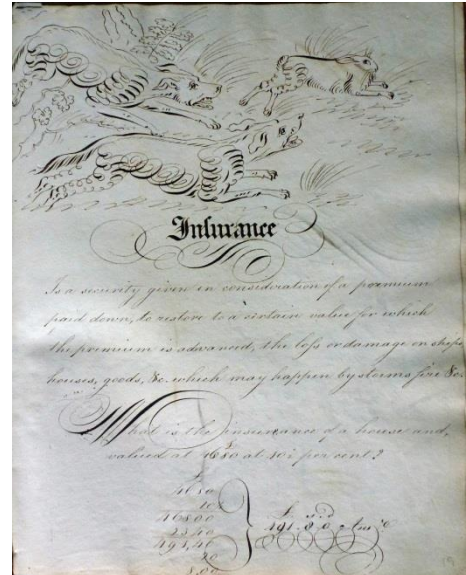 Insurance
Is a security given in consideration of a premium
paid down, to restore to a certain value for which
the premium is advanced, the loſs or damage on ships
houses, goods, &c. which may happen by storms fire &c
What is the insurance of a house and,
valued at £4680 at 10½ per cent?
£
4680
10
46800
2340
491,40
20
8.00
£ s d
491.8.0 Ans